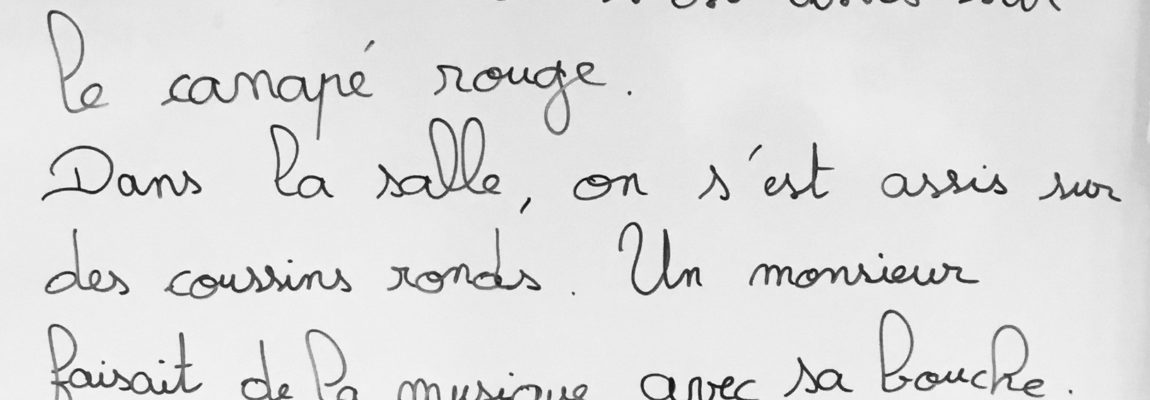 le canapé rouge.
Dans la salle, on s'est assis sur
des coussins ronds. Un monsieur
faisait de la musique avec sa bouche.